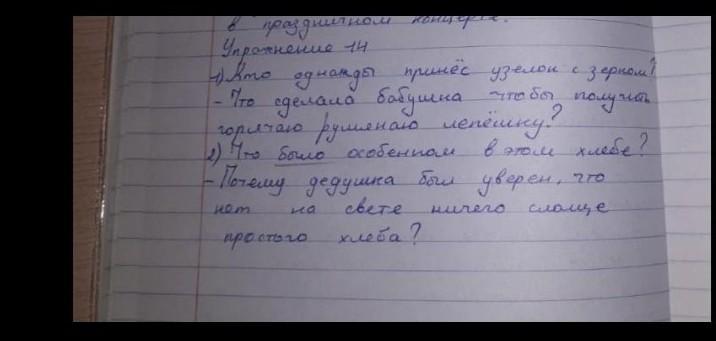 в праздничном концерте.
Упражнение 14
1) Кто однажды принёс узелок с зерном?
- Что сделала бабушка чтобы получить
горячаю румянаю лепёшку?
2) Что было особенном в этом хлебе?
- Почему дедушка был уверен, что
нет на свете ничего слаще
простого хлеба?